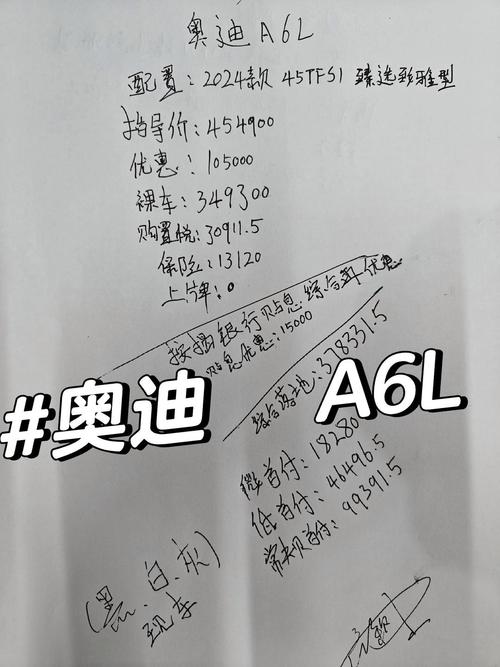 奥迪A6L
配置：2024款 45TFSI 臻选致雅型
指导价：454900
优惠：105000
裸车：349300
购置税：30911.5
保险：13120
上牌：0
按揭银行贴息综合再优惠
贴息优惠：15000
综合落地：378331.5
#奥迪 A6L
微首付：18280
低首付：46496.5
常规首付：99391.5
(黑、白、灰)
现车